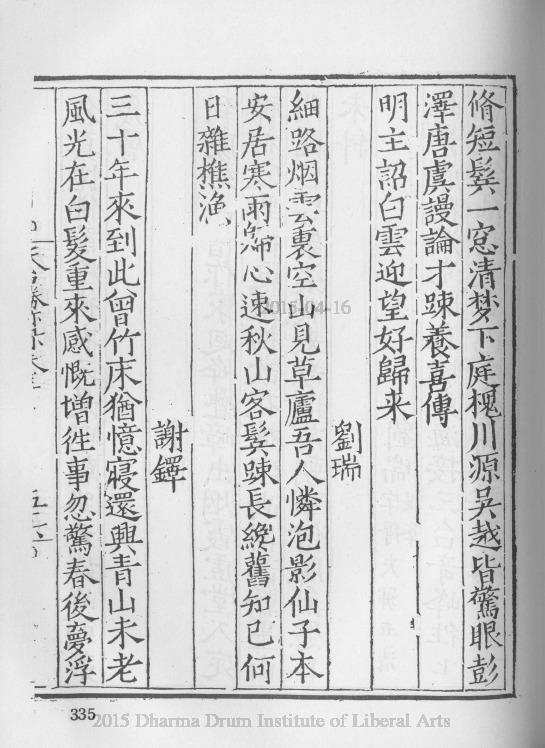 脩短鬂一窓清梦下庭槐川源吳越皆驚眼彭
澤唐虞謾論才踈養喜傳
明主詔白雲迎望好歸来
劉瑞
細路烟雲裏空山見草廬吾人憐泡影仙子本
安居寒雨歸心速秋山客鬂踈長繞舊知己何
日雜樵漁
謝鐸
三十年來到此曾竹床猶憶寢還興青山未老
風光在白髮重來感慨增徃事忽驚春後夢浮
335
2015-04-16
2015 Dharma Drum Institute of Liberal Arts